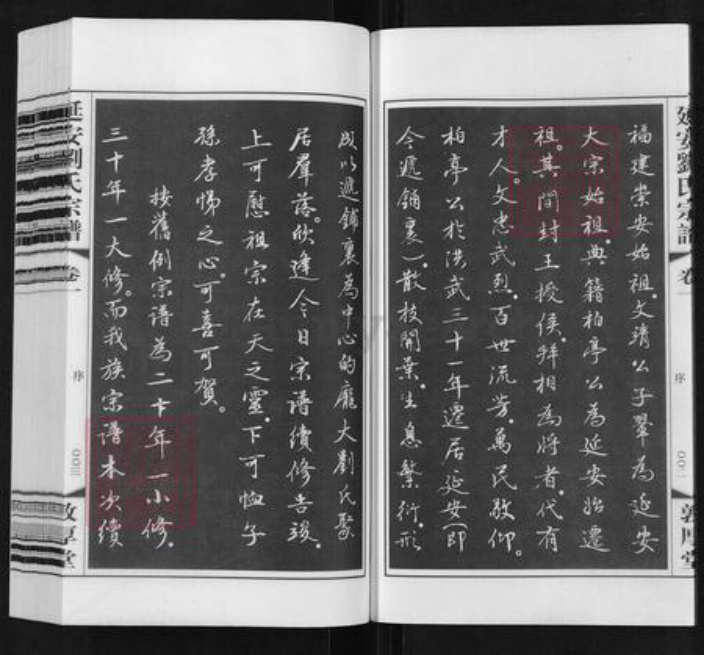 延安劉氏宗譜
卷一
序
〇〇二
敦厚堂
福建崇安始祖。文靖公子翬為延安
大宗始祖。典籍柏亭公為延安始遷
祖。其間封王授侯。拜相為將者。代有
才人。文忠武烈。百世流芳。萬民敬仰。
柏亭公於洪武三十一年遷居延安(即
今遞鋪裏)。散枝開葉。生息繁衍。形
成以遞鋪裏為中心的龐大劉氏聚
居羣落。欣逢今日宗譜續修告竣。
上可慰祖宗在天之靈。下可恤子
孫孝悌之心。可喜可賀。
按舊例宗譜為二十年一小修。
三十年一大修。而我族宗譜本次續
延安劉氏宗譜
卷一
序
〇〇三
敦厚堂